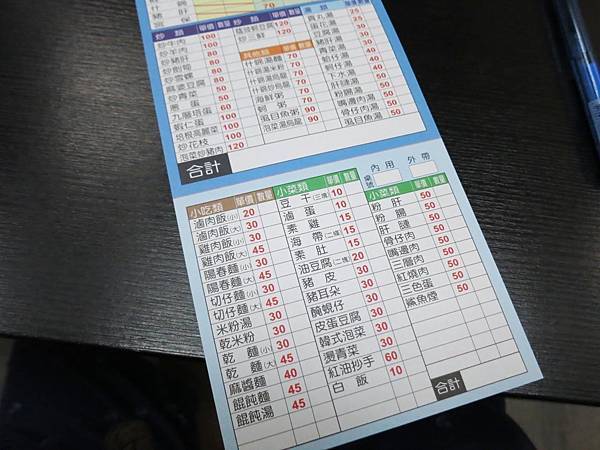 70
炒類 單價 數量
炒牛肉 100
炒羊肉 100
炒豬肝 80
炒劍筍 80
炒雪螺 80
麻婆豆腐 80
炒青菜 50
蔥蛋 50
九層塔蛋 60
蝦仁蛋 100
培根高麗菜 100
炒花枝 100
泡菜炒豬肉 120
炒類 單價 數量
120
炒三鮮 120
其他類 單價 數量
什錦湯麵 70
什錦湯米粉 70
什錦湯烏龍 70
什錦炒烏龍 70
海鮮粥 70
蚵粥 70
虱目魚粥 90
泡菜湯烏龍 90
湯類 單價 數量
貢丸湯 25
蛋花湯 25
豆腐湯 30
豬肝湯 30
青菜湯 40
蛤仔湯 40
蚵仔湯 40
下水湯 40
肝連湯 50
粉腸湯 50
嘴邊肉湯 50
骨仔肉湯 50
虱目魚湯 50
合計
小吃類 單價 數量
滷肉飯(小) 20
滷肉飯(大) 30
雞肉飯(小) 30
雞肉飯(大) 45
陽春麵(小) 30
陽春麵(大) 45
切仔麵(小) 30
切仔麵(大) 45
米粉湯 30
乾米粉 30
乾麵(小) 30
乾麵(大) 45
麻醬麵 40
餛飩麵 45
餛飩湯 45
小菜類 單價 數量
豆干(三塊) 10
滷蛋 10
素雞 15
海帶(二條) 15
素肚 15
油豆腐(二塊) 20
豬皮 30
豬耳朵 30
醃蜆仔 30
皮蛋豆腐 30
韓式泡菜 30
燙青菜 30
紅油抄手 60
白飯 10
桌號 內用 外帶
小菜類 單價 數量
粉肝 50
粉腸 50
肝連 50
骨仔肉 50
嘴邊肉 50
三層肉 50
紅燒肉 50
三色蛋 50
鯊魚煙 50
合計